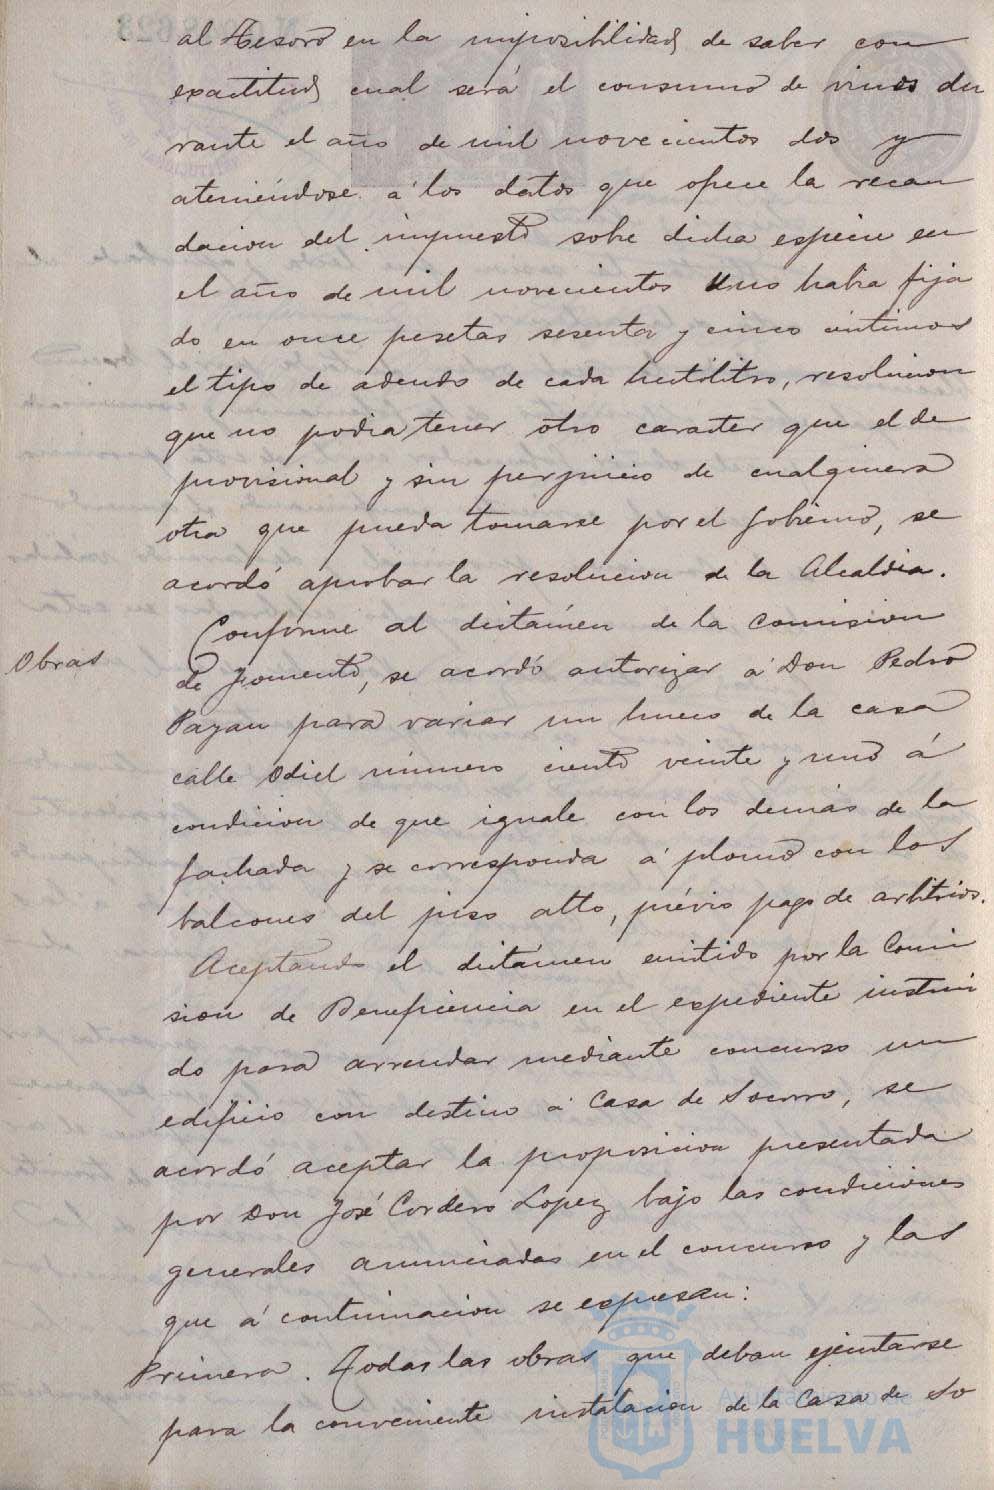 al Tesoro en la imposibilidad de saber con
exactitud cual será el consumo de vinos du
rante el año de mil novecientos dos y
ateniéndose á los datos que ofrece la recau
dacion del impuesto sobre dicha especie en
el año de mil novecientos uno habia fija
do en once pesetas sesenta y cinco céntimos
el tipo de adeudo de cada hectólitro, resolucion
que no podia tener otro caracter que el de
provisional y sin perjuicio de cualquiera
otra que pueda tomarse por el Gobierno, se
acordó aprobar la resolucion de la Alcaldia.
Obras
Conforme al dictámen de la Comision
de Fomento, se acordó autorizar á Don Pedro
Payan para variar un hueco de la casa
calle Odiel número ciento veinte y uno á
condicion de que iguale con los demás de la
fachada y se corresponda á plomo con los
balcones del piso alto, prévio pago de arbitrios.
Aceptando el dictamen emitido por la Comi
sion de Beneficencia en el espediente instrui
do para arrendar mediante concurso un
edificio con destino á Casa de Socorro, se
acordó aceptar la proposicion presentada
por Don José Cordero Lopez bajo las condiciones
generales anunciadas en el concurso y las
que á continuacion se espresan:
Primera. Todas las obras que deban ejecutarse
para la conveniente instalacion de la Casa de So
Ayuntamiento de
HUELVA